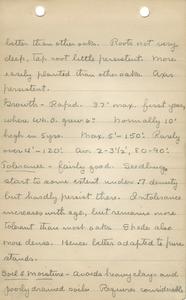 better than other oaks. Roots not very
deep, tap root little persistent. More
easily planted than other oaks. Axis
persistent.
Growth - Rapid. 37" max. first year,
where W.O. grew 2". Normally 10'
high in 5 yrs. Max. 5' - 150'. Rarely
over 4' - 120'. Av. 2 - 3½', 80 - 90'.
Tolerance - fairly good. Seedlings
start to some extent under .7 density
but hardly persist there. Intolerance
increases with age, but remains more
tolerant than most oaks. Shade also
more dense. Hence better adapted to pure
stands.
Soil & Moisture - Avoids heavy clays and
poorly drained soils. Requires considerable